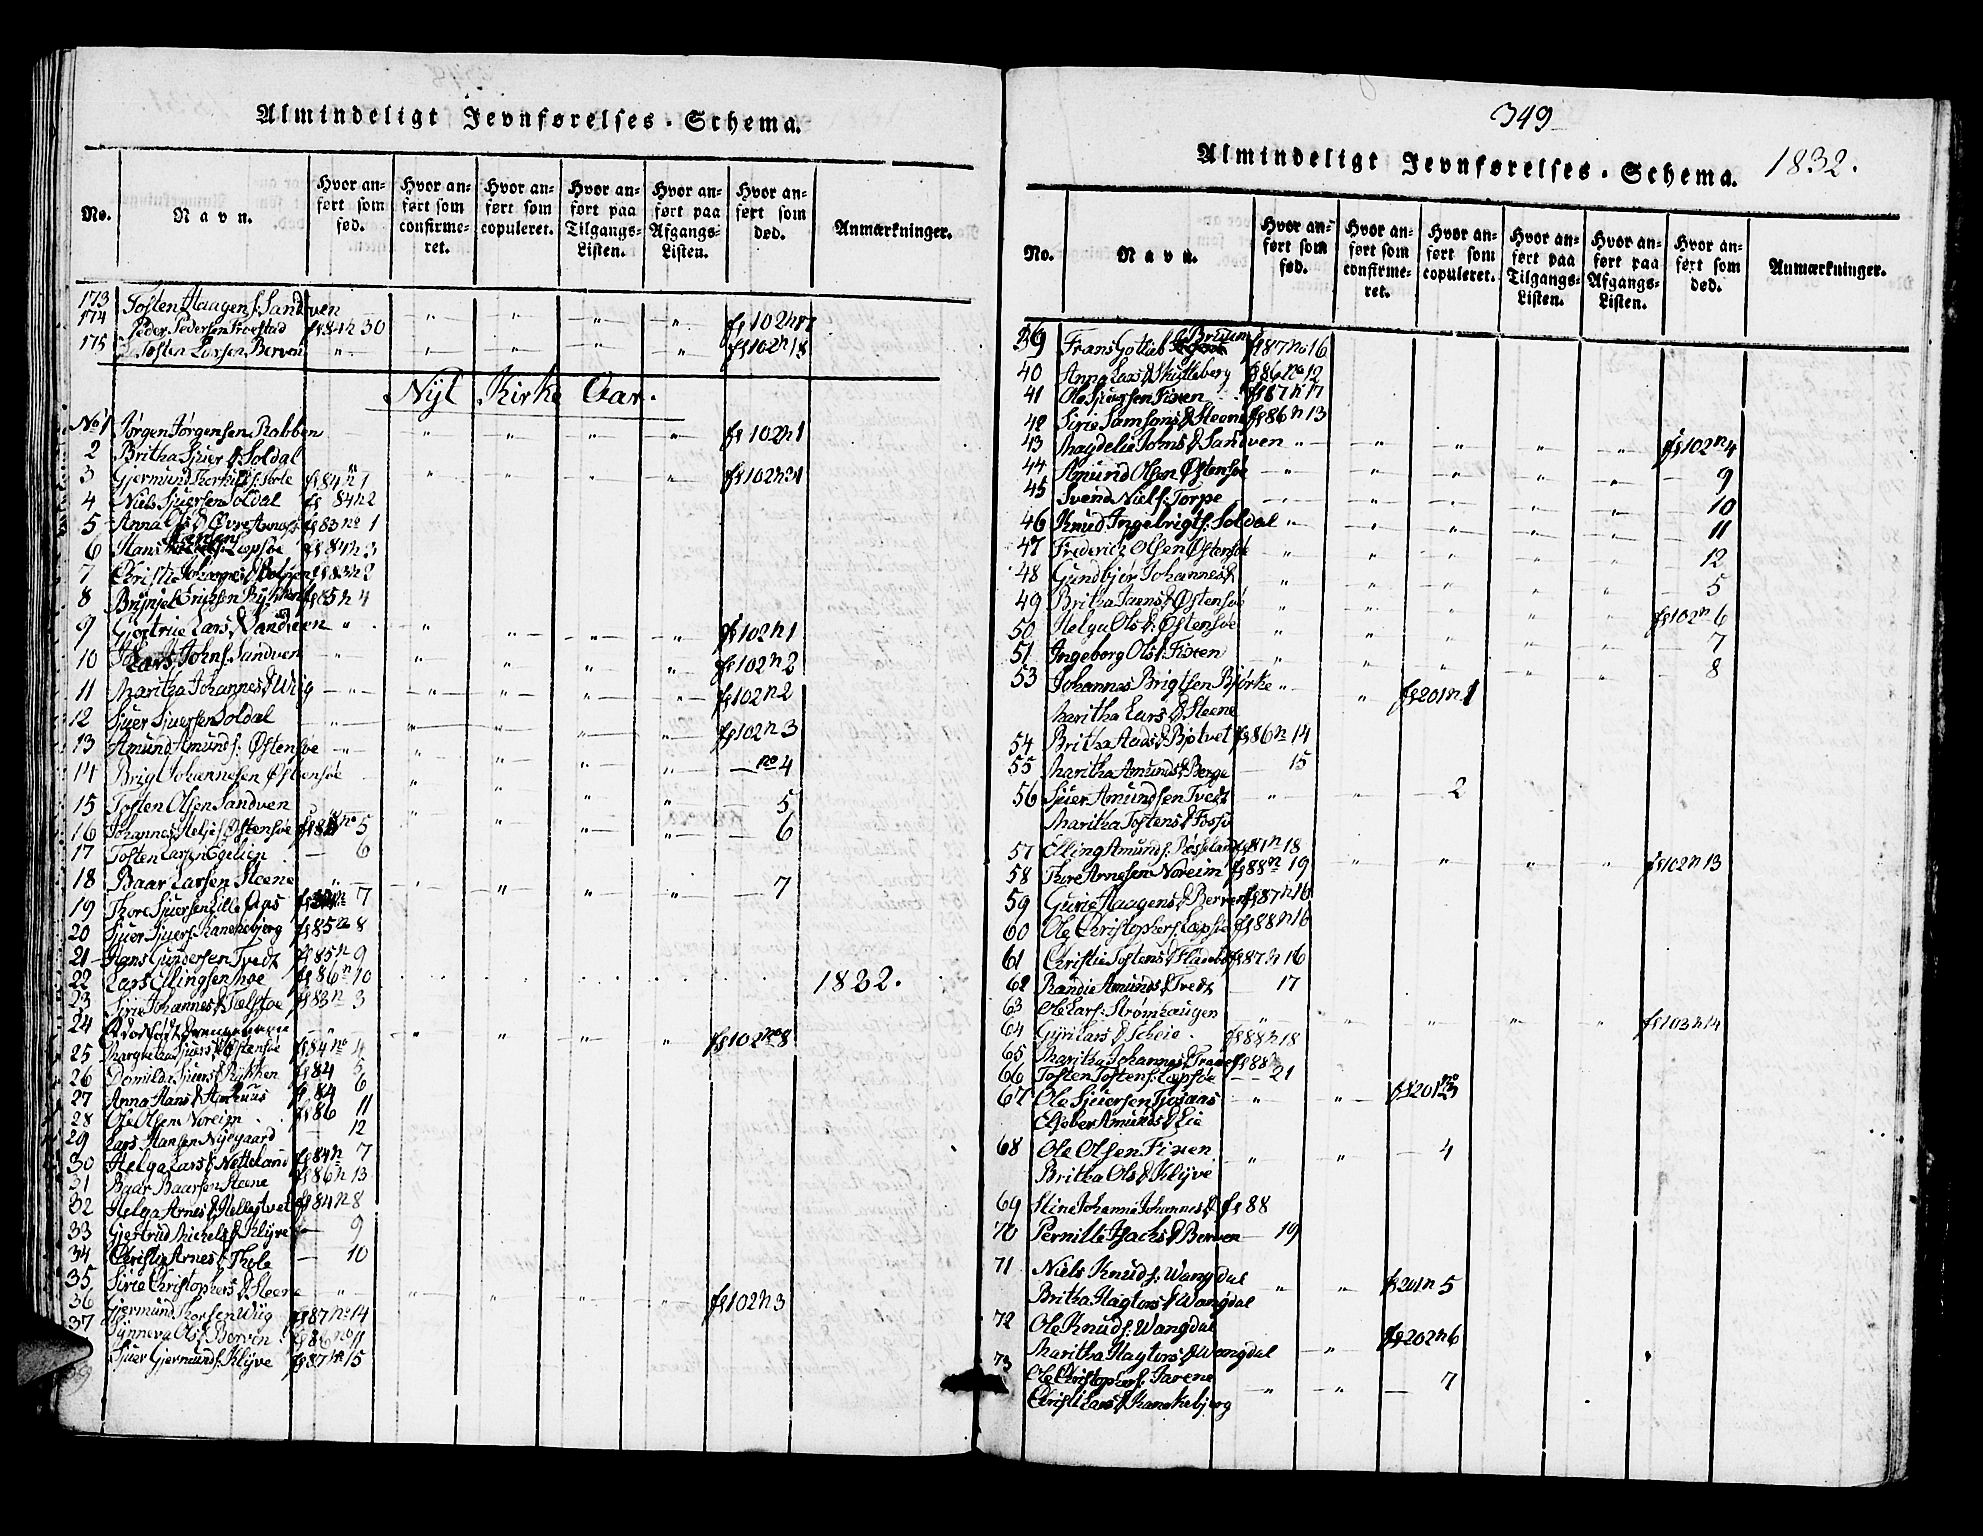 Almindeligt Jevnførelses-Schema.
No.
Navn.
Hvor anført som fød.
Hvor anført som confirmeret.
Hvor anført som copuleret.
Hvor anført paa Tilgangs-Listen.
Hvor anført paa Afgangs-Listen.
Hvor anført som død.
Anmærkninger.
173 Tosten Haagens. Sandven fs 102 n 17
174 Peder Pedersen Froestad fs 84 n 30
175 Tosten Larsen Berven fs 102 n 18
Nyt Kirke Aar.
No 1 Jørgen Jørgensen Rabben fs 102 n 1
2 Britha Sjuer D Soldal
3 Gjermund Thorkilds: fs 84 n 1 fs 102 n 31
4 Niels Sjuersen Soldal fs 84 n 2
5 Anna Ols D fs 83 no 1
6 Hans Lepsøe fs 84 n 3
7 Christie Johannes D fs 83 n 2
8 Brynjel Erichsen Rykken fs 85 n 4
9 Gjertrue Lars D Sandveen fs 102 n 1
10 Lars Johns. Sandven fs 102 n 2
11 Maritha Johannes D Wiig fs 102 n 2
12 Sjuer Sjuersen Soldal fs 102 n 3
13 Amund Amunds: Østensøe no 4
14 Brigt Johannesen Østensøe
15 Tosten Olsen Sandven 5
16 Johannes Helje s. Østensøe no 5 6
17 Tosten Larsen 6
18 Baar Larsen Steene 7
19 Thore Sjuersen Lille Aas 7
20 Sjuer Sjuers: Kanekebjerg fs 85 n 8
21 Hans Gundersen Tvedt fs 85 n 9
22 Lars Ellingsen Moe fs 86 n 10 1832.
23 Sirie Johannes D fs 83 n 3
24 fs 102 no 8
25 Margretha Sjuers D Østensøe fs 84 no 4
26 Domilda Sjuers D Rykken fs 84 5
27 Anna Hans D Aarhuus fs 84 6
28 Ole Olsen Noreim fs 86 11
29 Lars Hansen Nyegaard 12
30 Helga Lars D Netteland fs 84 n 7
31 Baar Baarsen Steene fs 86 n 13
32 Helga Arnes D Hellestvet fs 84 n 8
33 Gjertrud Michels D Klyve 9
34 Christie Arnes D 10
35 Sirie Christophers D Steene fs 102 n 3
36 Gjermund Thorsen Wiig fs 87 no 14
37 Synneva Ols D Berven fs 86 no 11
Sjuer Gjermunds. Klyve fs 87 no 15
349
Almindeligt Jevnførelses-Schema. 1832.
No.
Navn.
Hvor anført som fød.
Hvor anført som confirmeret.
Hvor anført som copuleret.
Hvor anført paa Tilgangs-Listen.
Hvor anført paa Afgangs-Listen.
Hvor anført som død.
Anmærkninger.
39 Frans Gotlieb fs 87 no 16
40 Anna Lars D Skutleberg fs 86 no 12
41 Ole Sjuersen Fixen fs 87 n 17
42 Sirie Samsons D Steene fs 86 n 13
43 Magdelie Johns D Sandven fs 102 n 4
44 Amund Olsen Østensøe 9
45 Svend Niels: Torpe 10
46 Knud Ingebrigts: Soldal 11
47 Frederich Olsen Østensøe 12
48 Gundbjør Johannes D 5
49 Britha Jaens D Østensøe fs 102 n 6
50 Helga Ols D. Østensøe 7
51 Ingeborg Ols D. Fixen 8
53 Johannes Brigtsen Bjørke fs 201 n 1
Maritha Lars D Steene
54 Britha Aads D Bjotvet fs 86 n 14
55 Maritha Amunds D Berge 15
56 Sjuer Amundsen Tvedt 2
Maritha Tostens D Fosse
57 Elling Amunds. Røsseland fs 81 n 18
58 Thore Arnesen Noreim fs 88 n 19 fs 102 n 13
59 Gurie Haagens D Berven fs 87 n 16
60 Ole Christophers: Lepsøe fs 88 n 16
61 Christie Tostens D fs 87 n 16
62 Randie Amunds D Tvedt 17
63 Ole Lars: Strømhaugen fs 103 n 14
64 Gyri Lars D Scheie fs 88 n 18
65 Maritha Johannes D fs 88
66 Tosten Tostens: Lepsøe 21
67 Ole Sjuersen Tjosaas fs 201 no 3
Elseber Amunds D Lie
68 Ole Olsen Fixen 4
Britha Ols D Klyve
69 Stine Johanna Johannes D. fs 88
70 Pernille Isachs D Berven 19
71 Niels Knuds: Wangdal fs 201 n 5
Britha Hagtors D Wangdal
72 Ole Knuds: Wangdal fs 202 n 6
Maritha Hagtors D Wangdal
73 Ole Christophers: Jarene 7
Christi Lars D Kanekebjerg